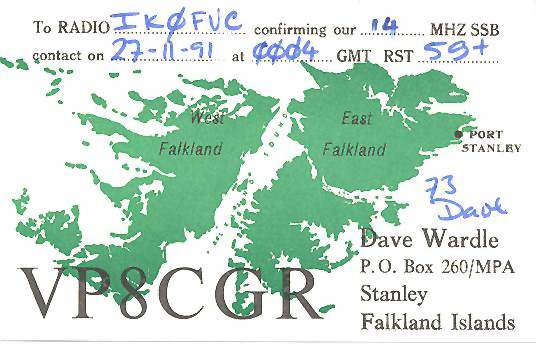 To RADIO IKØFVC confirming our 14 MHZ SSB
contact on 27-11-91 at 0004 GMT RST 59+
West
Falkland
SOUND
East
Falkland
PORT
STANLEY
73
Dave
Dave Wardle
P.O. Box 260/MPA
Stanley
Falkland Islands
VP8CGR